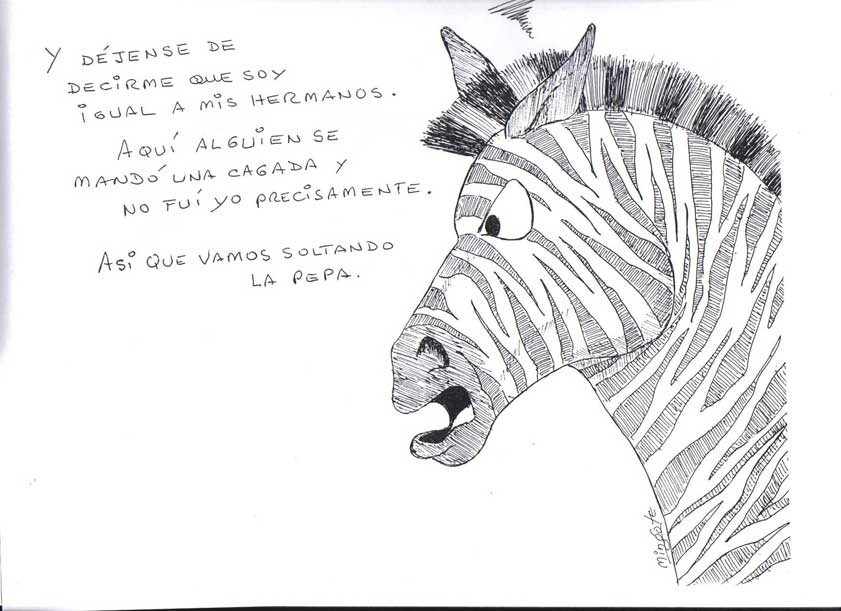 Y DÉJENSE DE
DECIRME QUE SOY
IGUAL A MIS HERMANOS.
AQUÍ ALGUIEN SE
MANDÓ UNA CAGADA Y
NO FUÍ YO PRECISAMENTE.
ASI QUE VAMOS SOLTANDO
LA PEPA.